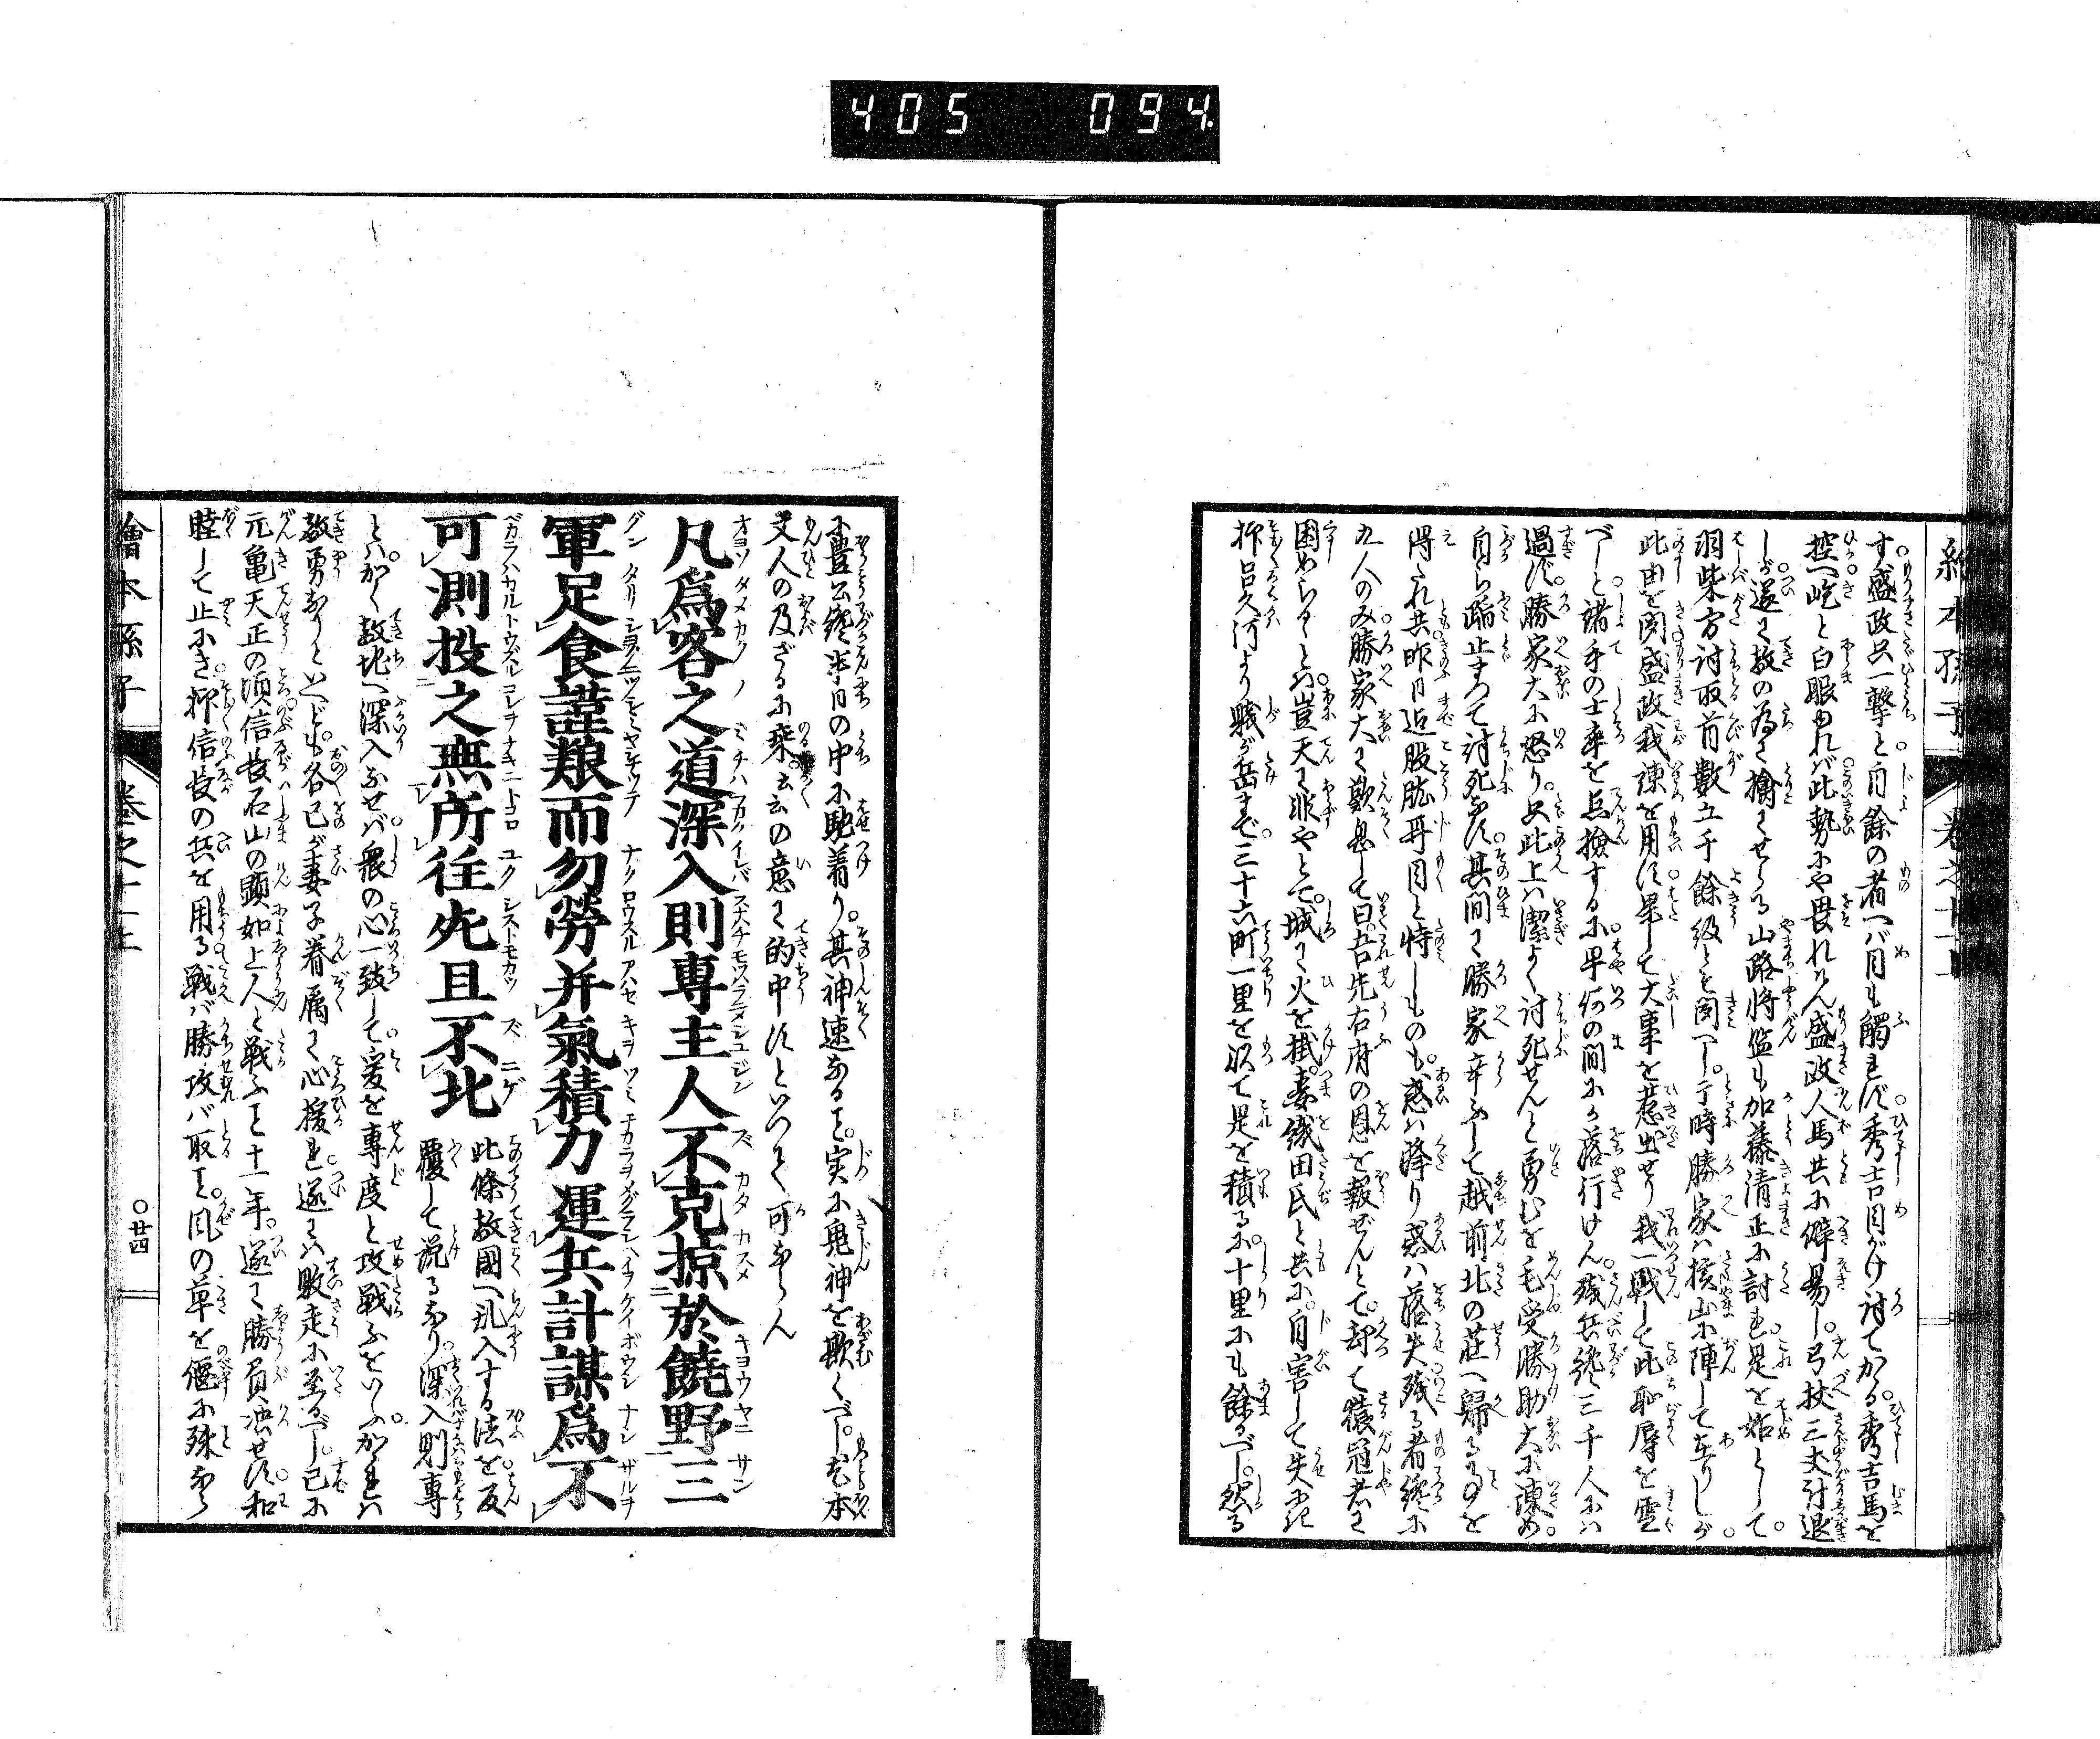 405 094
す。盛政只一撃と自餘の者へバ目も觸ㇾず。秀吉目がけ討てかゝる。秀吉馬を
控へ屹と白眼ければ此勢にや畏れけん盛政人馬共に僻易し。弓杖三丈計退
しが。遂に敵の為に擒にせらる山路将監も加藤清正に討れ。是を始として。
羽柴方討取前數五千餘級とぞ聞へし。于時勝家ハ狭山に陣して在りしが。
此由を聞盛政我諫を用ず。果して大事を惹出せり我一戦して此恥辱を雪
べしと。諸手の士卒を点撿するに。早何の間にか落行けん。残兵纔三千人にハ
過ず。勝家大に恐り。只此上ハ潔よく討死せんと勇むを毛受勝助大に諫め。
自ら踏止まつて討死す。其間に勝家辛ふして越前北の莊へ歸る事を
得たれ共。昨日迄股肱耳目と恃しものも。惑ハ降り惑ハ落失残る者纔に
九人のみ。勝家大に歎息して曰。吾先右府の恩を報ぜんとて。却て猿冠者に
困めらるゝとハ。豈天に非やとて。城に火を掛。妻織田氏と共に。自害して失にけ
抑呂久河より戦が岳まで。三十六町一里を以て是を積るに。十里にも餘るべし。然る
繪本孫子 巻之十二
に豊公纔半日の中に馳着り。其神速なる事。実に鬼神を欺くべし。尤本
文人の及ざるに乗云云の意に的中すといつて可ならん
凡爲客之道深入則專主人不克掠於饒野三
軍足食謹糧而勿勞并氣積力運兵計謀爲不
可測投之無所往死且不北
此條敵國へ乱入する法を反
覆して説るなり。深入則專
とハ。かく敵地へ深入なせバ。衆の心一致して。爰を專度と攻戦ふをいふ。かれハ
敵勇なりといへども。各己が妻子眷属に心援れ。遂にハ敗走に至るべし。已に
元亀天正の頃。信長石山の顕如上人と戦ふ事十一年。遂に勝負決せず。和
睦して止にき。抑信長の兵を用る戦バ勝攻バ取事。風の草を偃に殊なら
繪本孫子 巻之十二 〇廿四